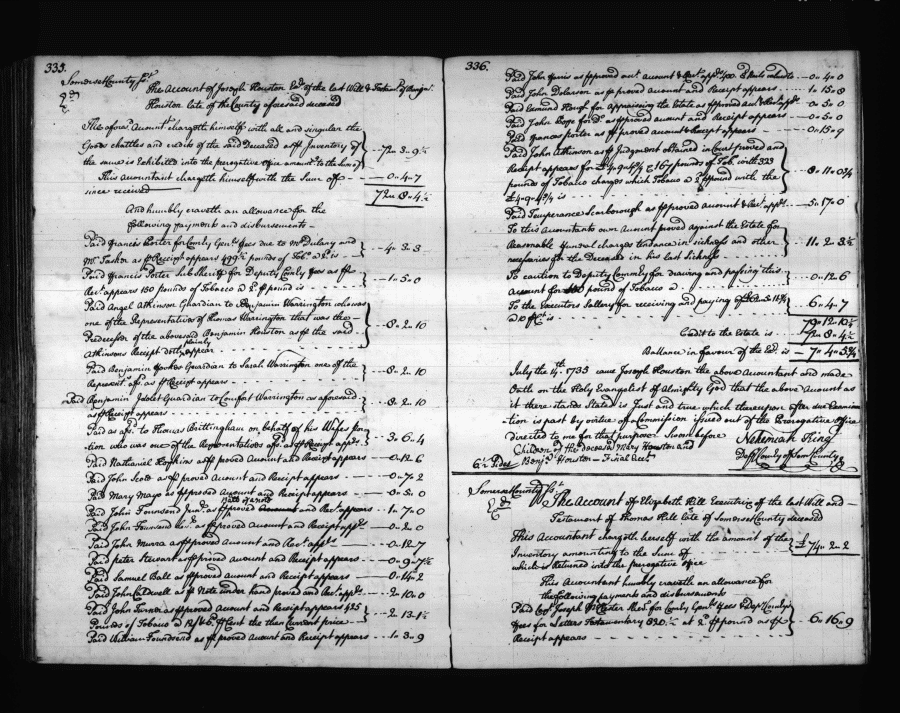 335.
Somerset County ss.t
The Account of Joseph Houston Ex.r of the last Will & Testam.t of Benja.
Houston late of the County aforesaid deceased
The afores.d Accountant chargeth himself with all and singular the
Goods chattles and credits of the said Deceased as p Inventory of
the same is Exhibited into the prerogative office amount.g to the sum of 72-3-9½
This accountant chargeth himself with the Sum of 0-4-7
since received
72-8-4½
And humbly craveth an allowance for the
following payments and disbursements
Paid Francis Porter for Comly Gen.ls fees due to Mr Dulany and
Mr Tasker as p Receipt appears 499½ pounds of Tob.o a 2d is 4-3-3
Paid Francis Porter Sub Sheriff for Deputy Comly fees as p
Rec.t appears 150 pounds of Tobacco a 2d p pound is 1-5-0
Paid Angel Atkinson Guardian to Benjamin Warrington who was
one of the Representatives of Thomas Warrington that was the
Predecessor of the abovesaid Benjamin Houston as p the said
Atkinsons Receipt plainly appear 8-2-10
Paid Benjamin Guardian to Sarah Warrington one of the
Represent.s afs.d as p Receipt appears 8-2-10
Paid Benjamin Guardian to Comfort Warrington as aforesaid
as p Receipt appears 8-2-10
Paid as afs.d to Thomas Brittingham on behalf of his Wifes por
tion who was one of the Representatives afs.d as p Receipt app.rs 3-6-4
Paid Nathaniel Hopkins as p proved Account and Receipt appears 0-12-6
Paid John Scott as p proved Account and Receipt appears 0-7-2
Paid Mary Mayo as p proved Account and Receipt appears 0-5-0
Paid John Townsend Jun.r as p proved and Rec.t appears 1-7-0
Paid John Townsend as p proved Account and Receipt app.rs 0-2-0
Paid John Murra as p proved Account and Rec.t app.rs 0-12-7
Paid peter Stewart as p proved Account and Receipt appears 0-9-7½
Paid Samuel Ball as p proved Account and Receipt appears 0-14-2
Paid John Caldwell as p Note under hand proved and Rec.t app.rs 2-10-0
Paid John as p proved Account and Receipt appears 425
Pounds of Tobacco a 12/6 p Cent the then Current price 2-13-1½
Paid William Townsend as p proved Account and Receipt appears 1-3-9
336.
Paid John Harris as p proved acc.t account & Rec.t app.rs 0-4-0
Paid John Dickerson as p proved Account and Receipt appears 1-15-8
Paid Edmund Hough for Appraising the Estate as p proved acc.t Rec.t app.rs 0-5-0
Paid John for D.o as p proved account and Receipt appears 0-5-0
Paid Frances Porter as p proved account & Receipt appears 0-15-9
Paid John Atkinson as p Judgment obtained in Court proved and
Receipt appears for £4-9-4¾ & 167 pounds of Tob. with 323
pounds of Tobacco charges which Tobacco a 2d p pound with the
£4-9-4¾ is 8-11-0¾
Paid Temperance Scarborough as p proved Account & Rec.t app.rs 5-17-0
To this Accountants own Account proved against the Estate for
Reasonable funeral charges tendance in sickness and other
necessaries for the Deceased in his last Sickness 11-2-3½
To caution to Deputy Commry for drawing and passing this
account for pounds of Tobacco a 0-12-6
To the Executors Sallery for receiving and paying
a p C.t is 6-4-7
79-12-10½
Credit to the Estate is 72-8-4½
Ballance in favour of the Ex.r is 7-4-5¾
July the 14.th 1735 came Joseph Houston the above Accountant and made
Oath on the Holy Evangelist of Almighty God that the above Account as
it there stands Stated is Just and true which thereupon after due Examina
tion is past by virtue of a Commission issued out of the Prerogative Office
directed to me for that purpose. Sworn before Nehemiah King
Dep.ty Comly of Som.t County
Children of the deceased Mary Houston and
Benj.a Houston - Final
6½ Sides
Somerset County ss.t
The Account of Elizabeth Hill Executrix of the last Will and
Testament of Thomas Hill late of Somerset County deceased
This Accountant chargeth herself with the amount of the
Inventory amounting to the Sum of £74-2-2
which is Returned into the prerogative office
This Accountant humbly craveth an allowance for
the following payments and disbursements
Paid Cap.t Joseph McClester for Comly Gen.ls fees & Dep.ty Comly
fees for Letters Testamentary 820½ at 2d p pound as p
Receipt appears 6-16-9